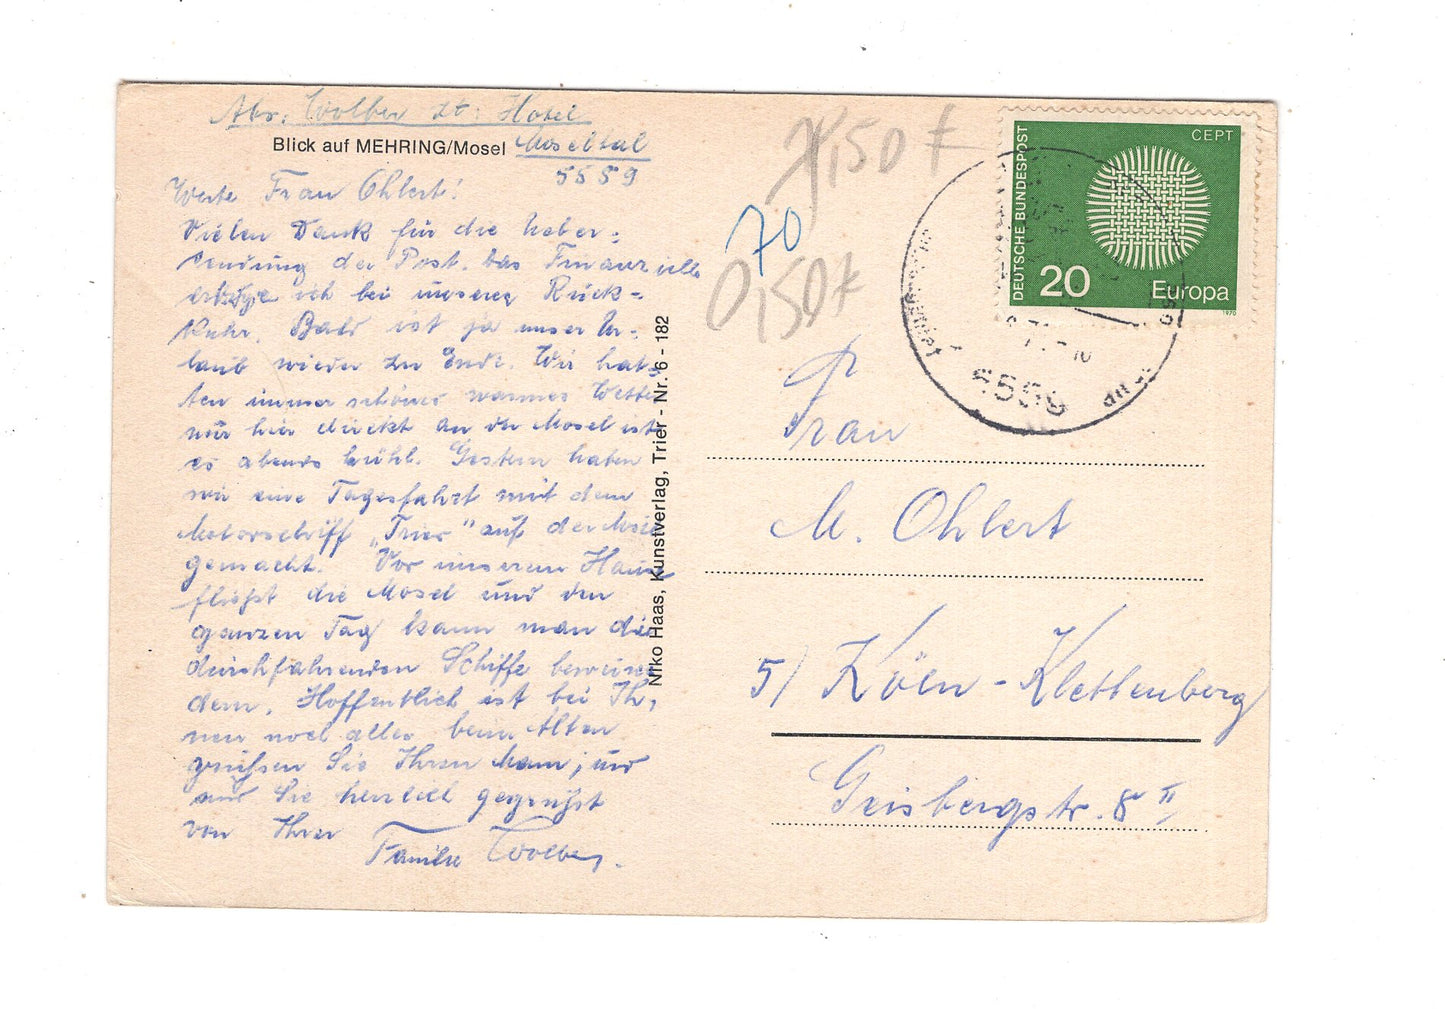 Abs. Woelber zt: Hotel
Moseltal
5559
Blick auf MEHRING/Mosel
Werte Frau Ohlert!
Vielen Dank für die Ueber-
sendung der Post. Das Finanzielle
erledige ich bei unserer Rück-
kehr. Bald ist ja unser Ur-
laub wieder zu Ende. Wir hat-
ten immer schönes warmes Wetter
nur hier direkt an der Mosel ist
es abends kühl. Gestern haben
wir eine Tagesfahrt mit dem
Motorschiff „Trier" auf der Mosel
gemacht. Vor unserem Hause
fließt die Mosel und den
ganzen Tag kann man die
durchfahrenden Schiffe bewun
dern. Hoffentlich ist bei Ih,
nen noch alles beim Alten
grüßen Sie Ihren Mann, und
und Sie herzlich gegrüßt
von Ihrer
Familie Woelber.
Niko Haas, Kunstverlag, Trier - Nr. 6 - 182
1,50 €
70
0,50 €
DEUTSCHE BUNDESPOST
CEPT
20
Europa
1970
5559
Frau
M. Ohlert
5/ Köln-Klettenberg
Geisbergstr. 8 II